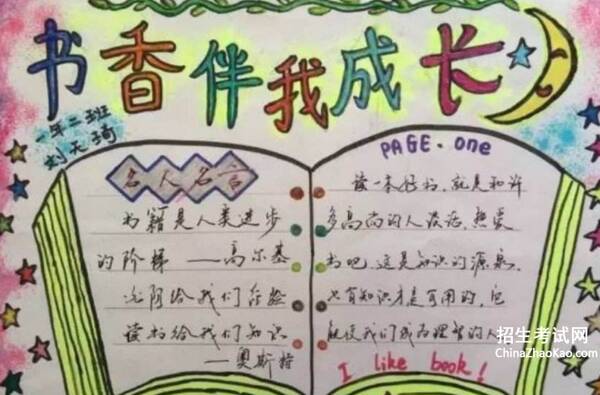 书香伴我成长
一年二班
刘天琦
名人名言
书籍是人类进步
的阶梯 ——高尔基
光阴给我们经验
读书给我们知识
——奥斯特
PAGE·one
读一本好书,就是和许
多高尚的人谈话,热爱
书吧,这是知识的源泉,
只有知识才是可用的,它
能使我们成为理智的人
I like book!
招生考试网
ChinaZhaoKao.com